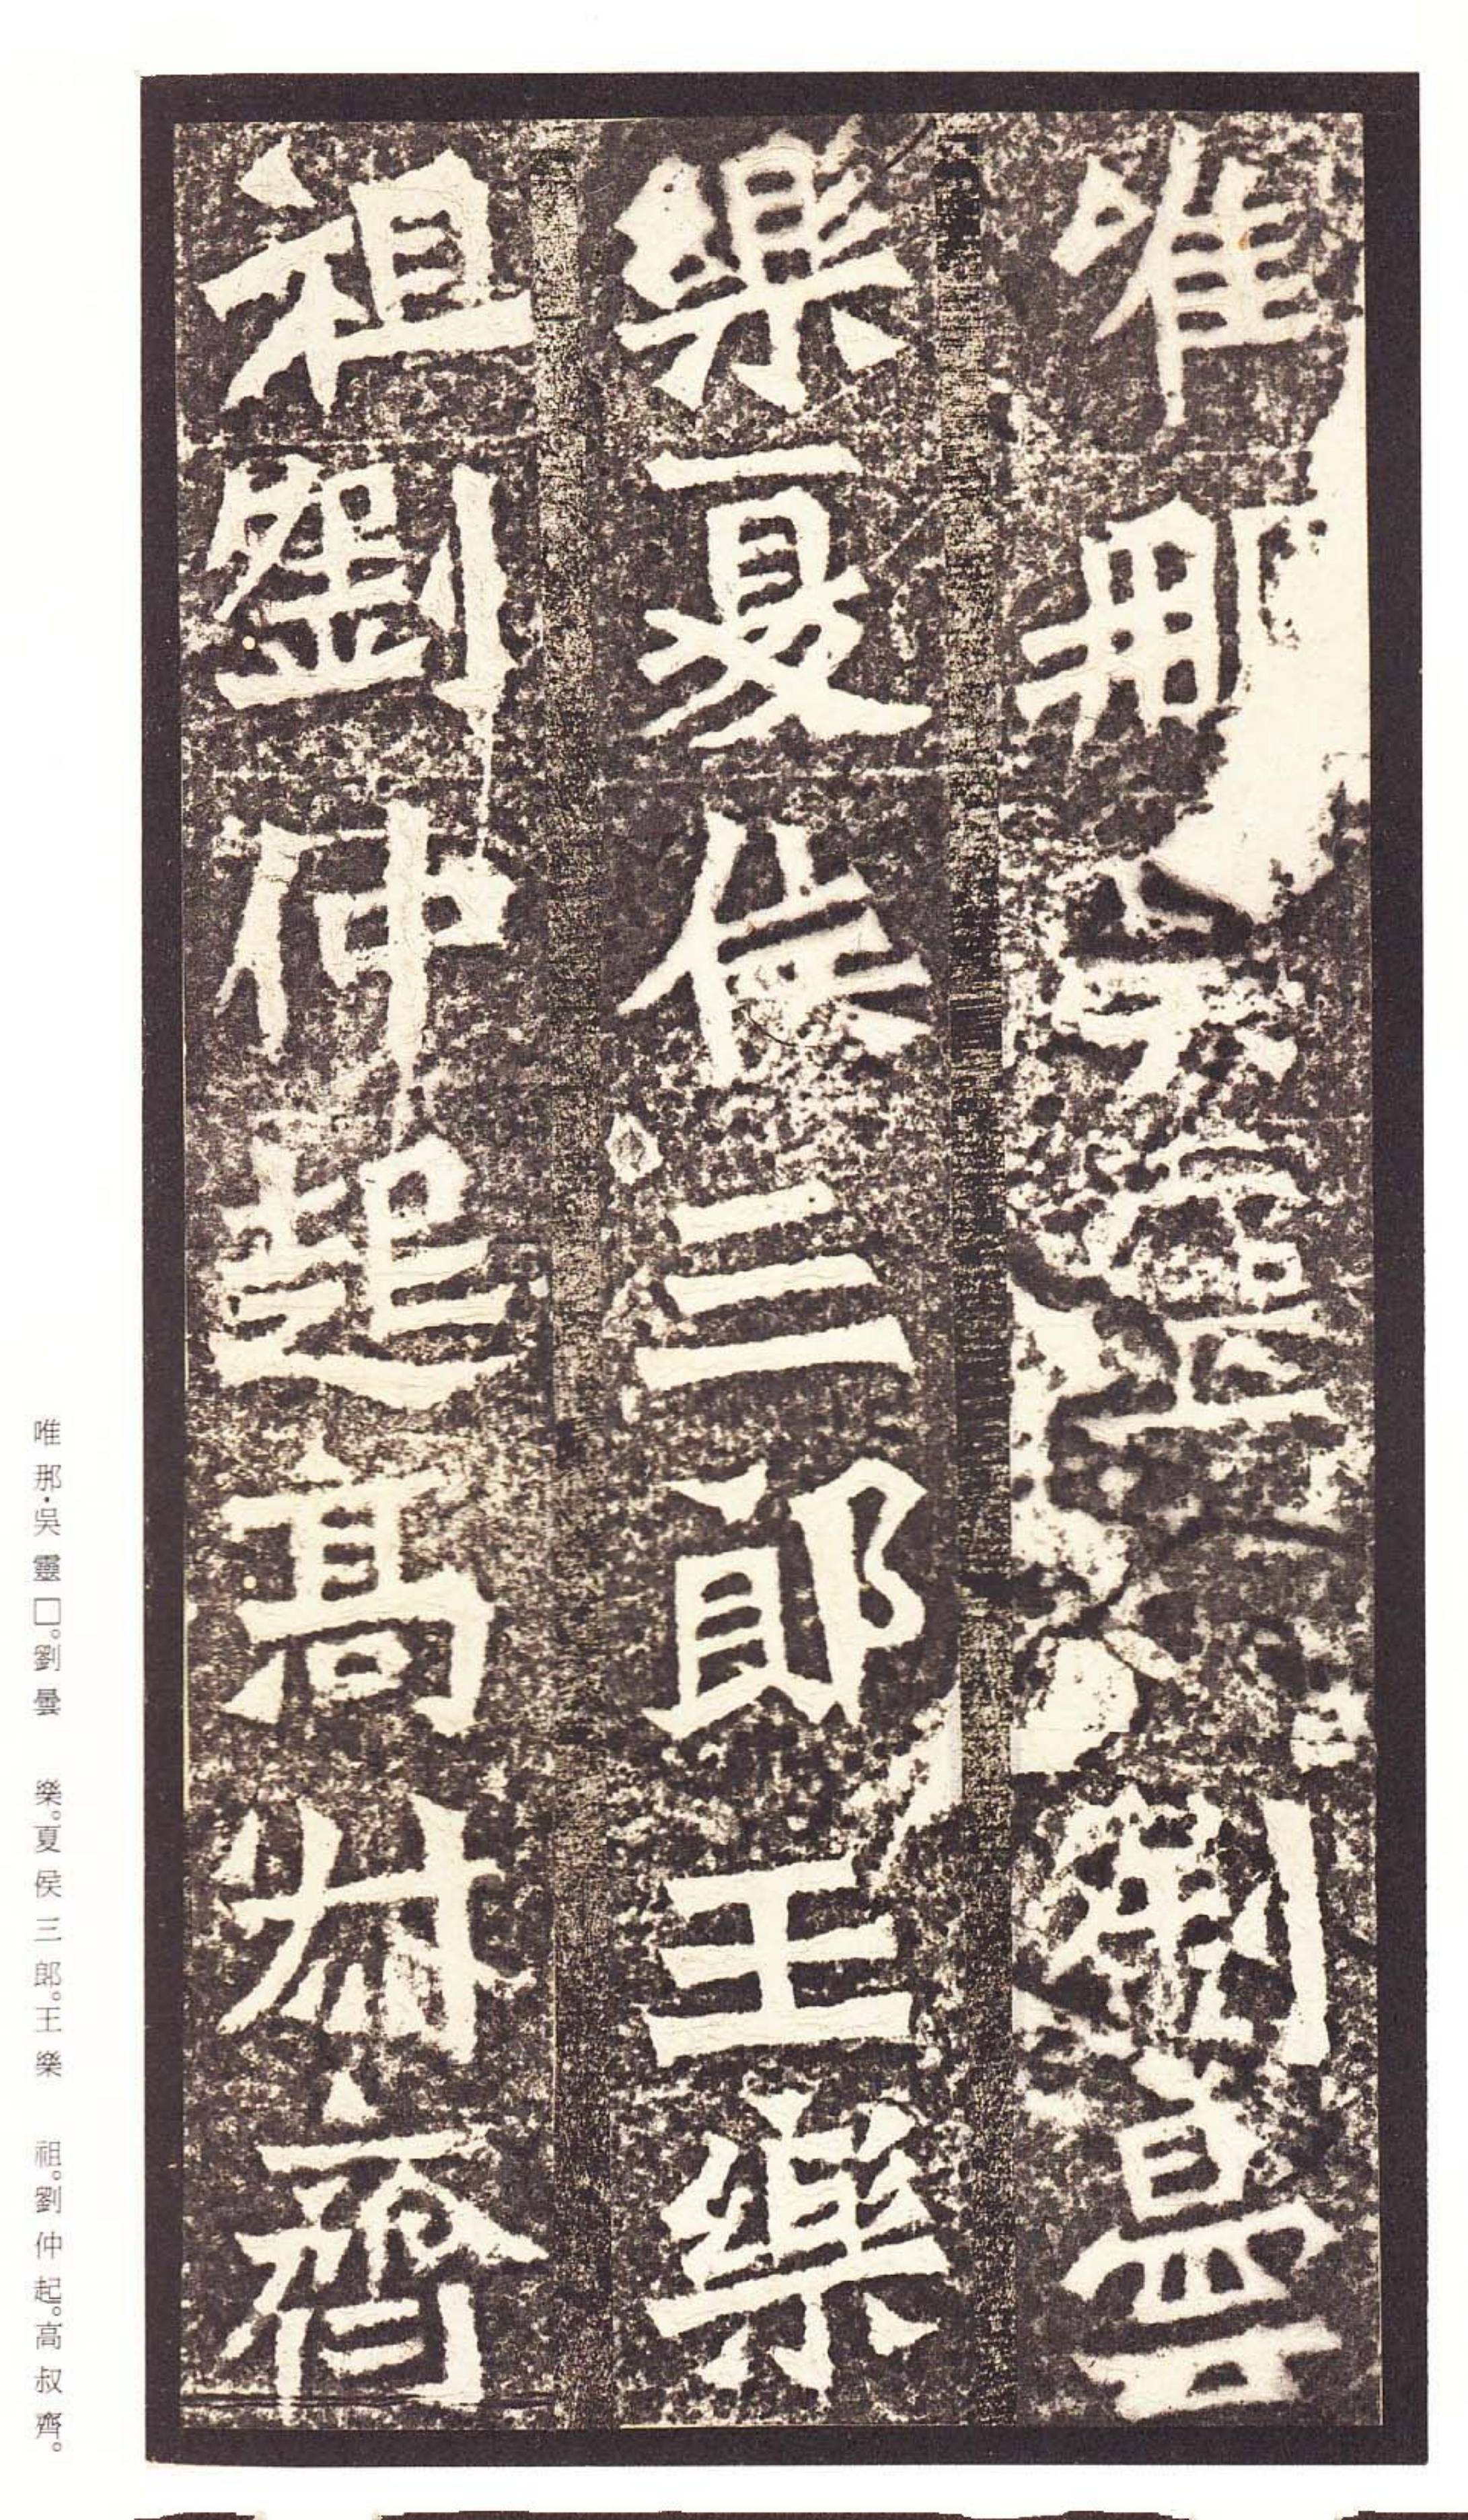 唯那吳靈劉曇
樂夏侯三郎王樂
祖劉仲起高叔齊
唯那·吳靈□。劉曇　樂。夏侯三郎。王樂　祖。劉仲起。高叔齊。